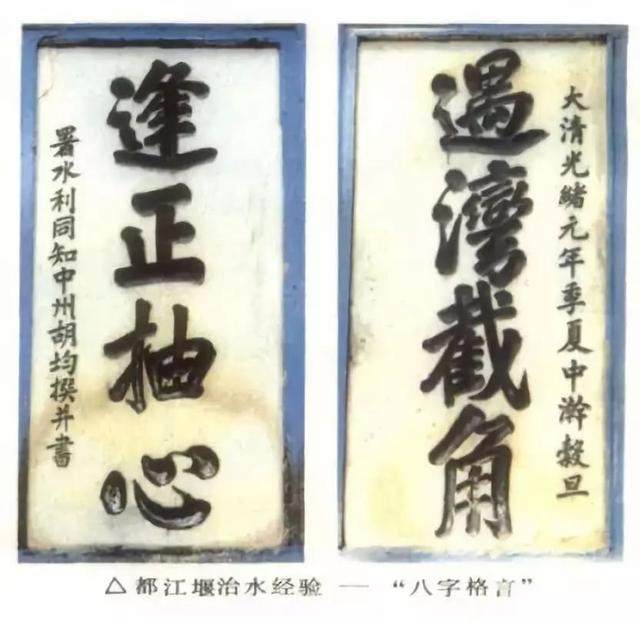 大清光緒元年季夏中澣穀旦
遇灣截角
逢正抽心
署水利同知中州胡均撰并書
△都江堰治水经验 — “八字格言”